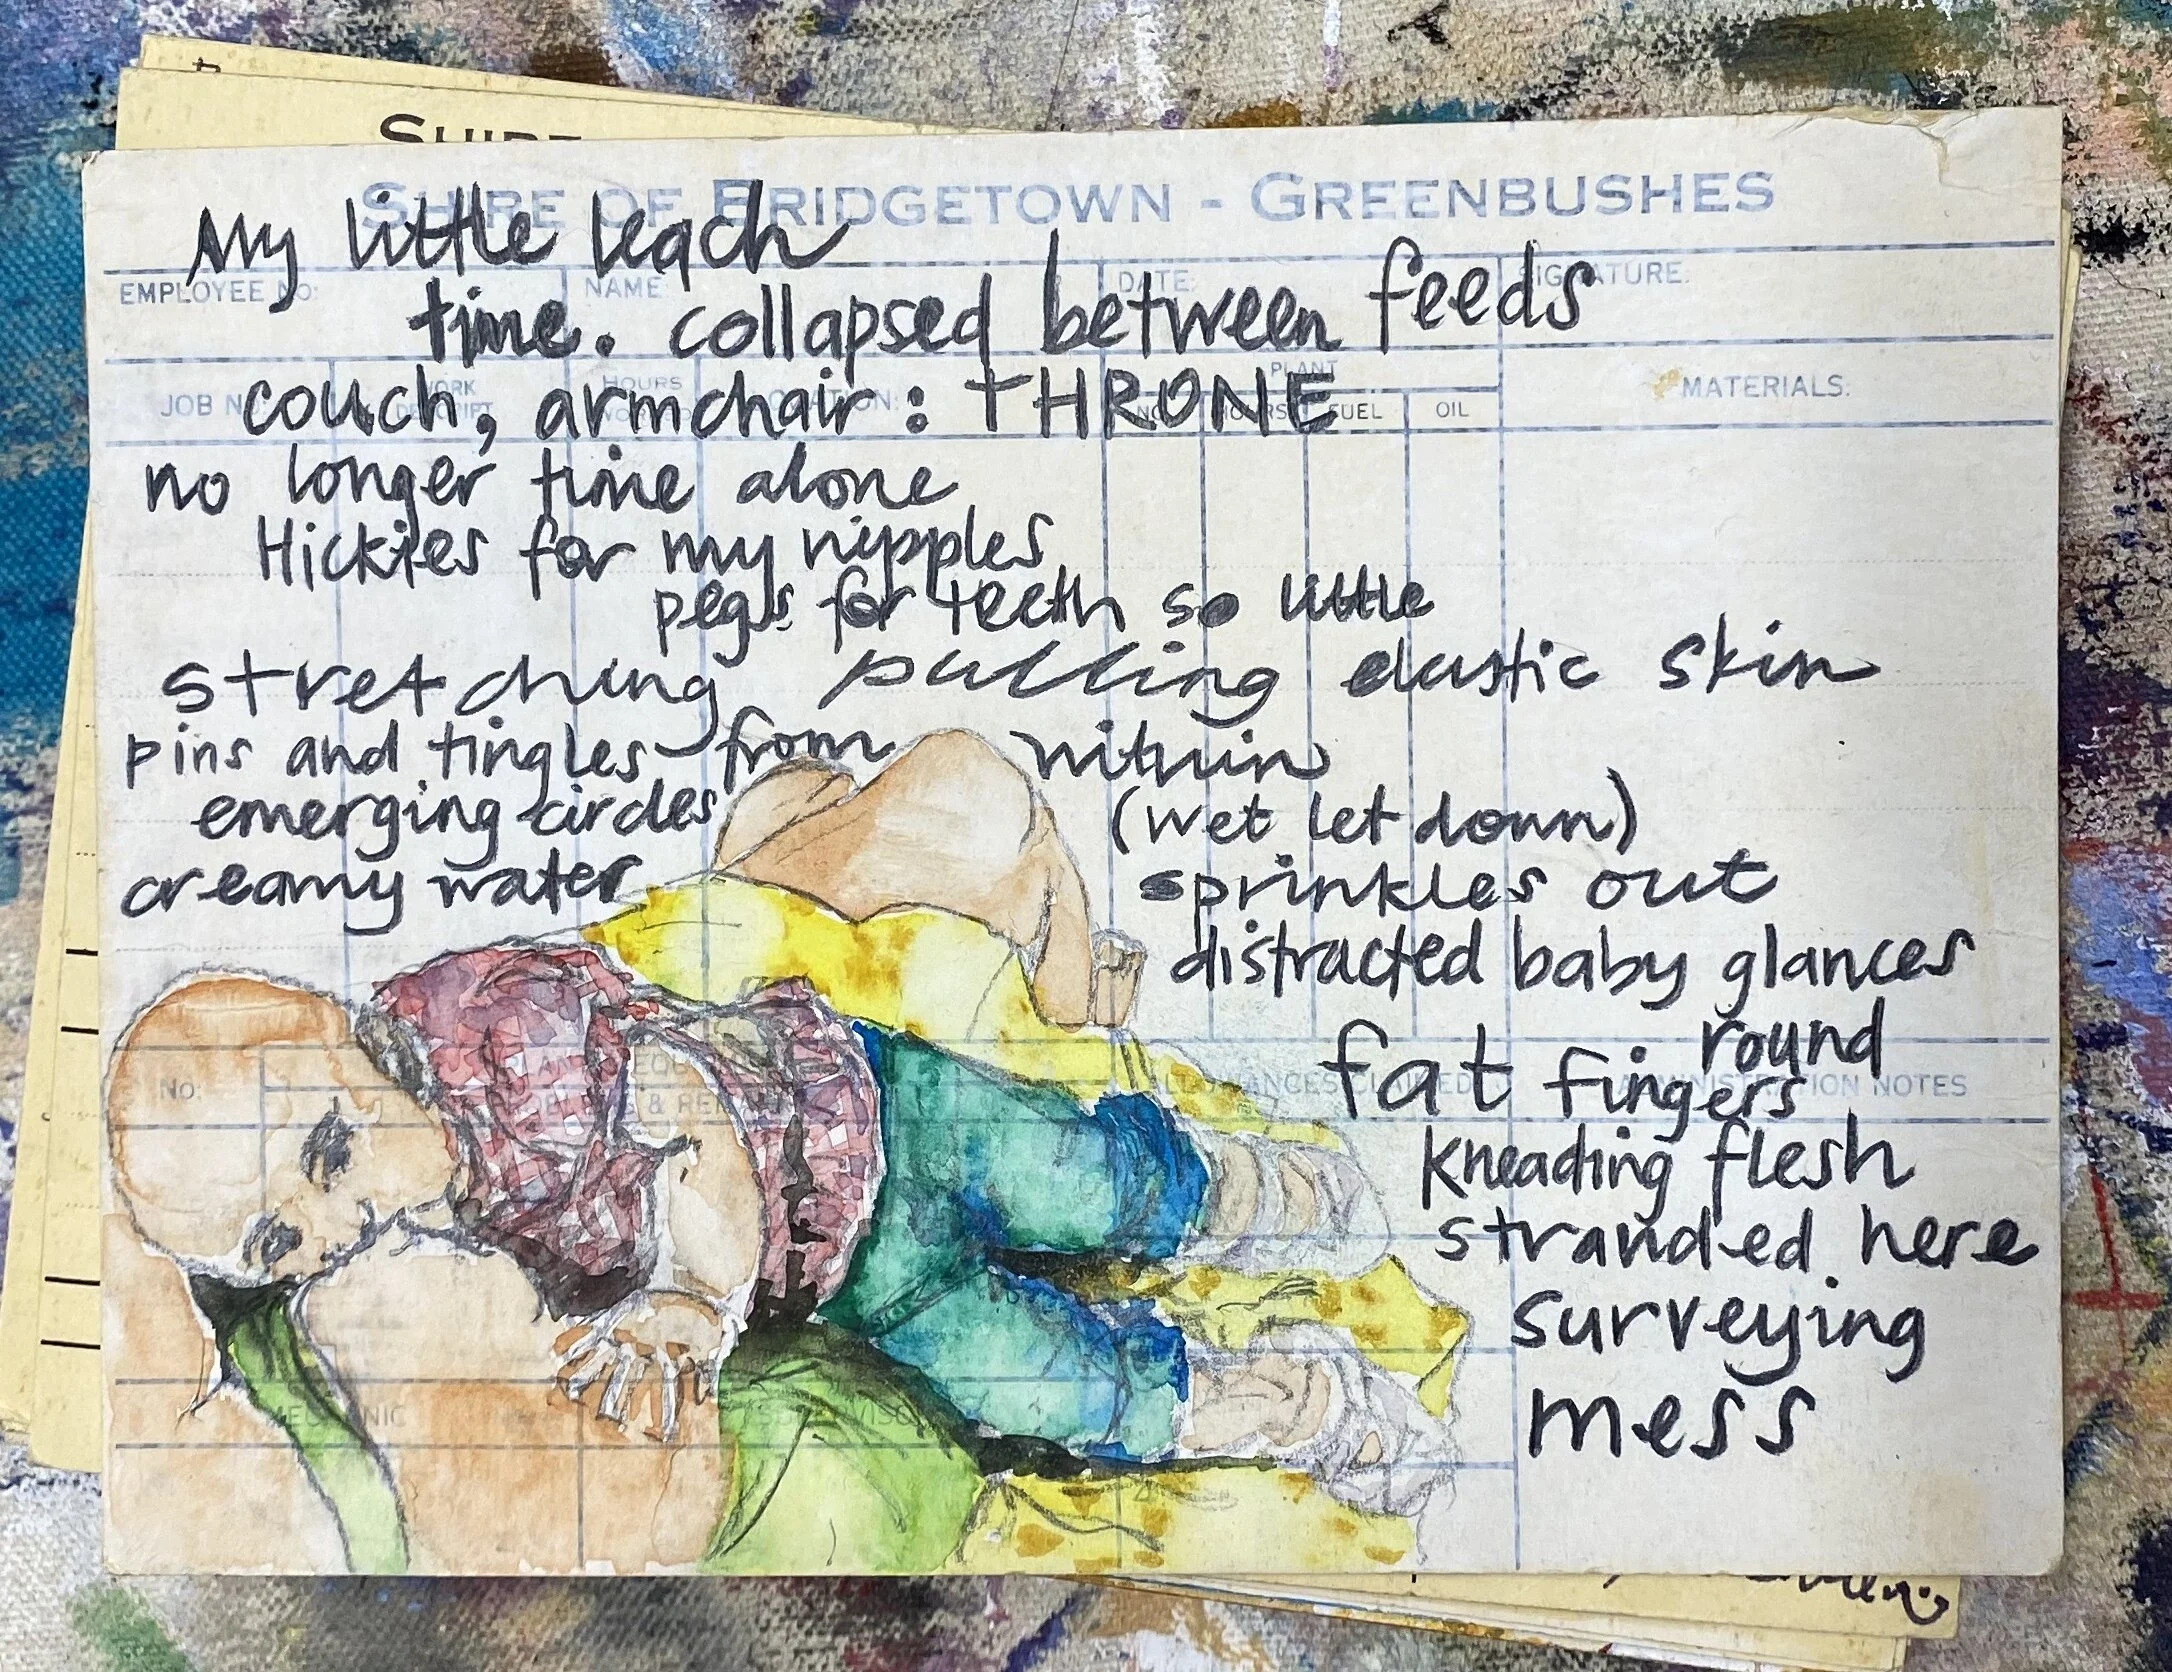 SHIRE
SHIRE OF BRIDGETOWN - GREENBUSHES
My little leach
EMPLOYEE NO: NAME DATE: SIGNATURE:
time. collapsed between feeds
JOB NO: WORK DESCRIPT HOURS PLANT MATERIALS:
NO HOURS FUEL OIL
couch, armchair: THRONE
no longer time alone
Hickies for my nipples
pegs for teeth so little
stretching pulling elastic skin
pins and tingles from within
emerging circles (wet let down)
creamy water sprinkles out
distracted baby glances
round
fat fingers
No: ALLOWANCES CLAIMED ADMINISTRATION NOTES
kneading flesh
stranded here
surveying
mess
MECHANIC